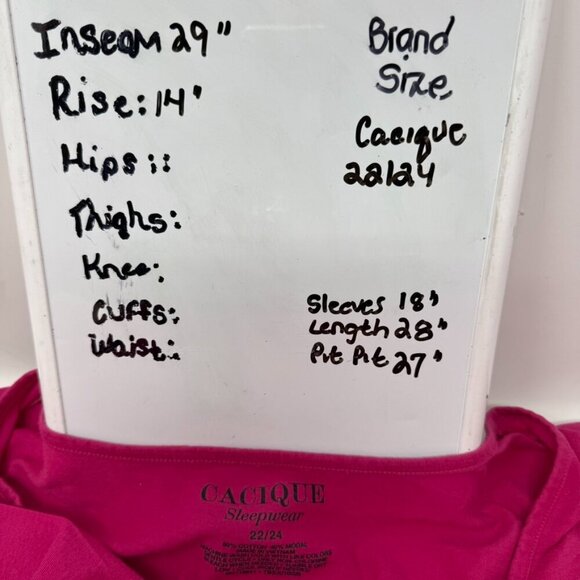 Inseam 29"
Rise: 14"
Hips ::
Thighs:
Knee:
Cuffs:
Waist:
Brand
Size
Cacique
22/24
Sleeves 18"
Length 28"
Pit Pit 27"
CACIQUE
Sleepwear
22/24
MADE IN VIETNAM